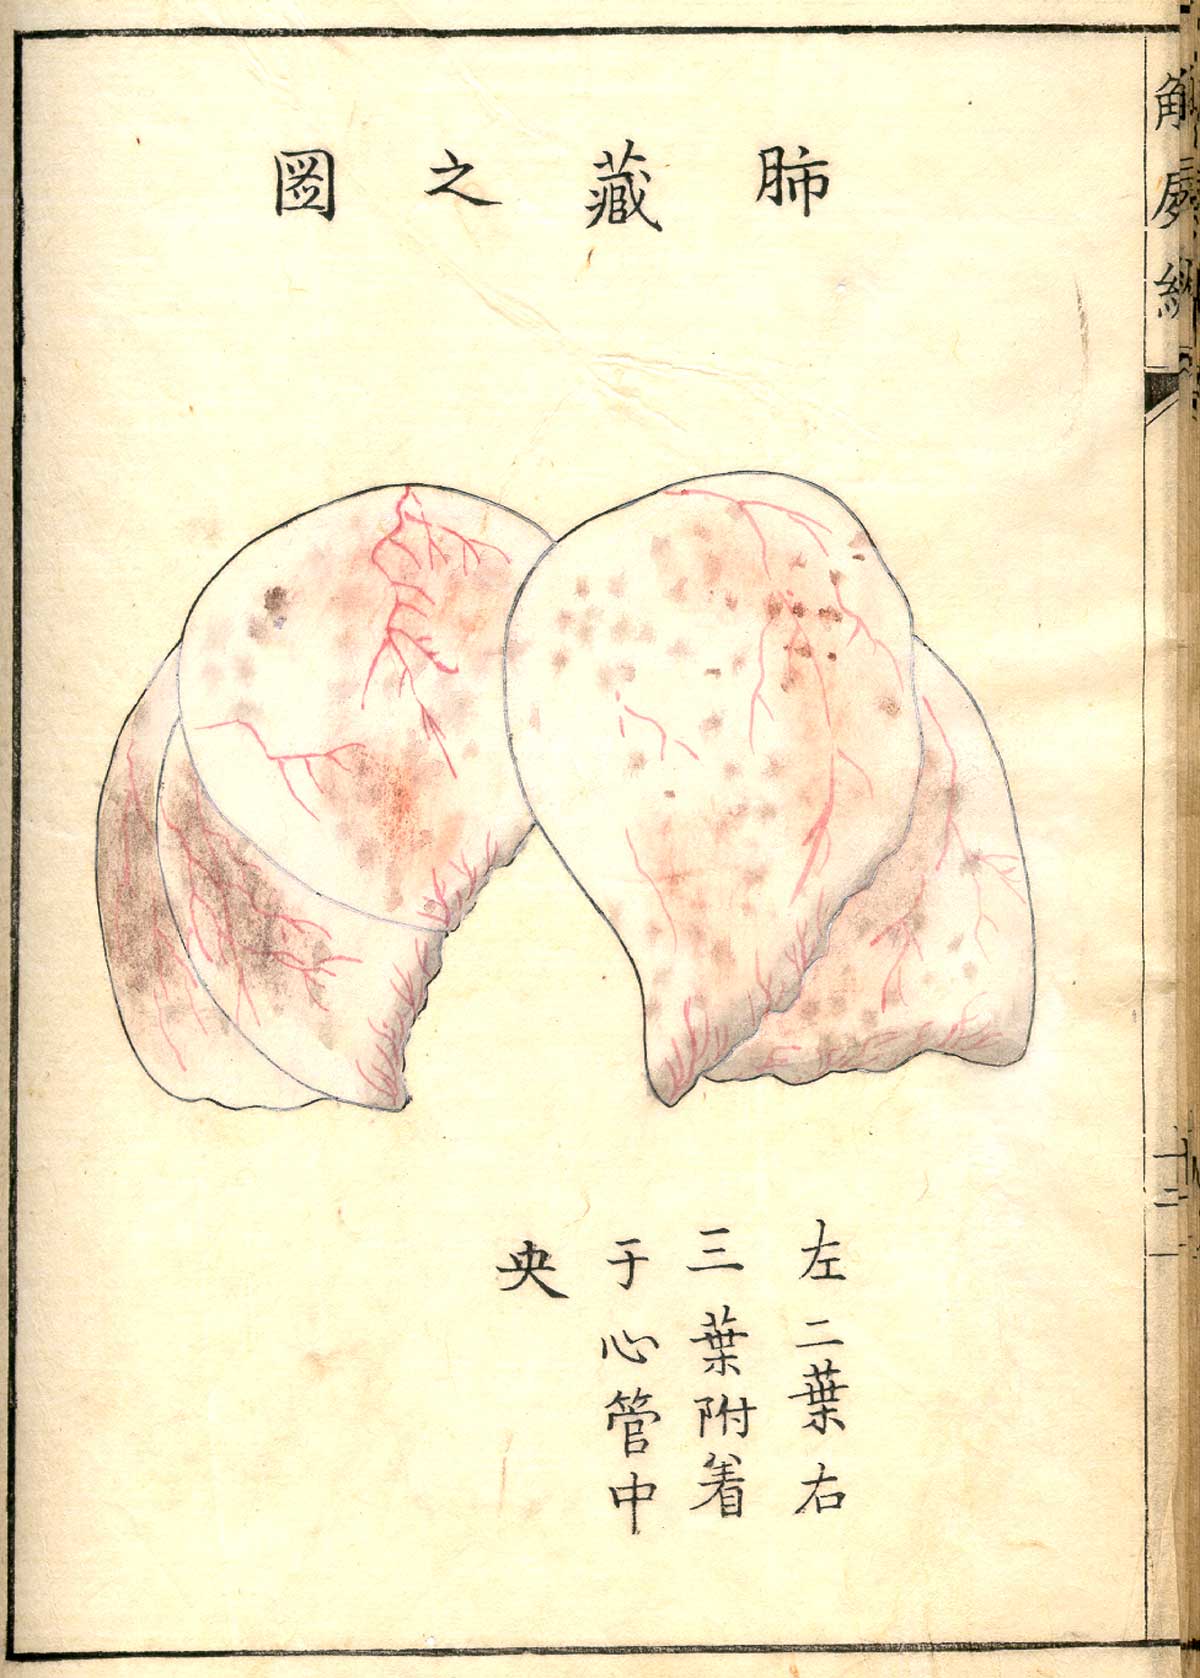 解屍編
十二
肺藏之圖
左二葉右
三葉附着
于心管中
央